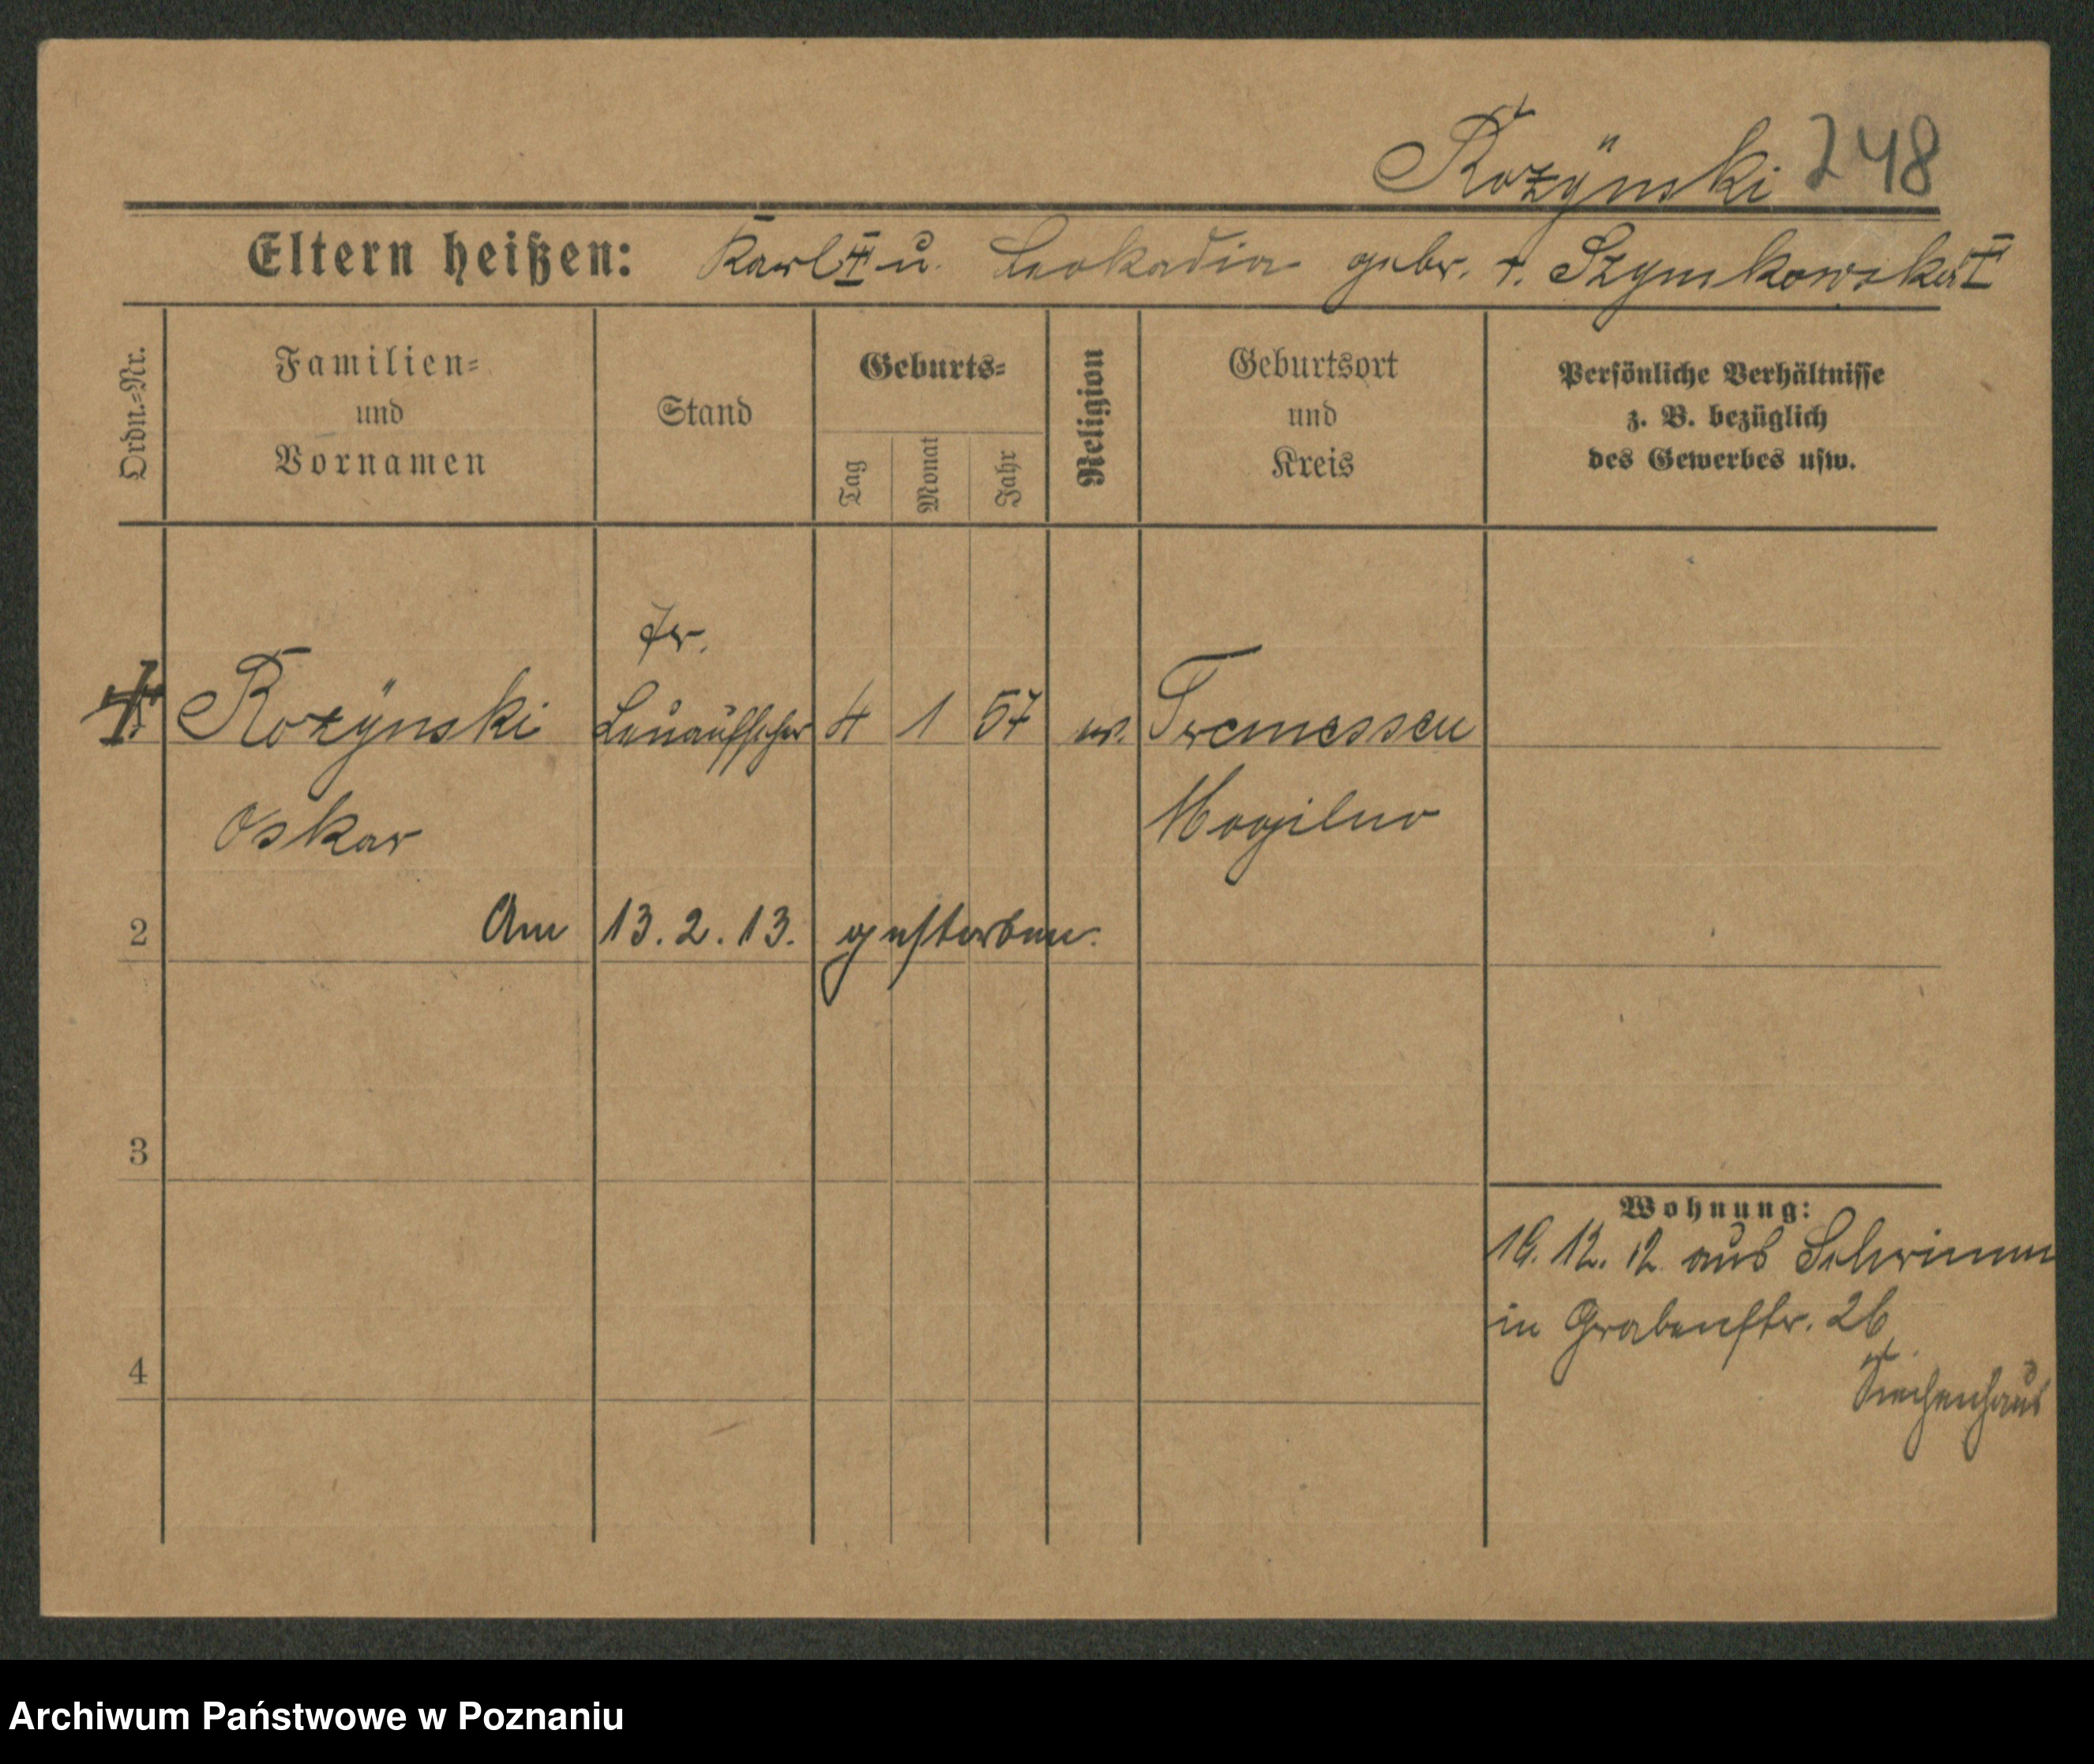 Rozÿnski 248
Eltern heißen: Karl † u. Leokadia gebr. v. Szymkowska †
Ordn.-Nr.
Familien-
und
Vornamen
Stand
Geburts-
Tag
Monat
Jahr
Religion
Geburtsort
und
Kreis
Persönliche Verhältnisse
z. B. bezüglich
des Gewerbes usw.
Rozÿnski 4 1 57 Tremessen
Oskar Mogilno
2 Am 13. 2. 13. gestorben.
3
4
Wohnung:
12. 12 aus
in Grabenstr. 26
Siechenhaus
Archiwum Państwowe w Poznaniu